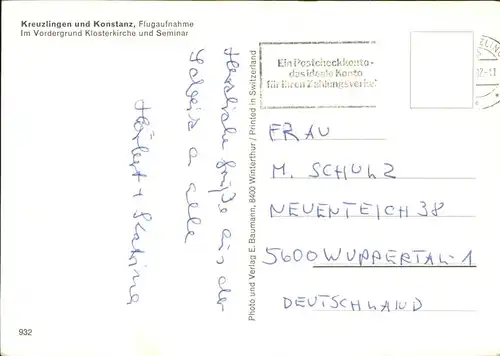 Kreuzlingen und Konstanz, Flugaufnahme
Im Vordergrund Klosterkirche und Seminar
Ein Postcheckkonto -
das ideale Konto
für Ihren Zahlungsverkehr
Herzliche Grüße aus der
a alle
Herbert +
Photo und Verlag E. Baumann, 8400 Winterthur / Printed in Switzerland
FRAU
M. SCHULZ
NEUENTEICH 38
5600 WUPPERTAL-1
DEUTSCHLAND
932